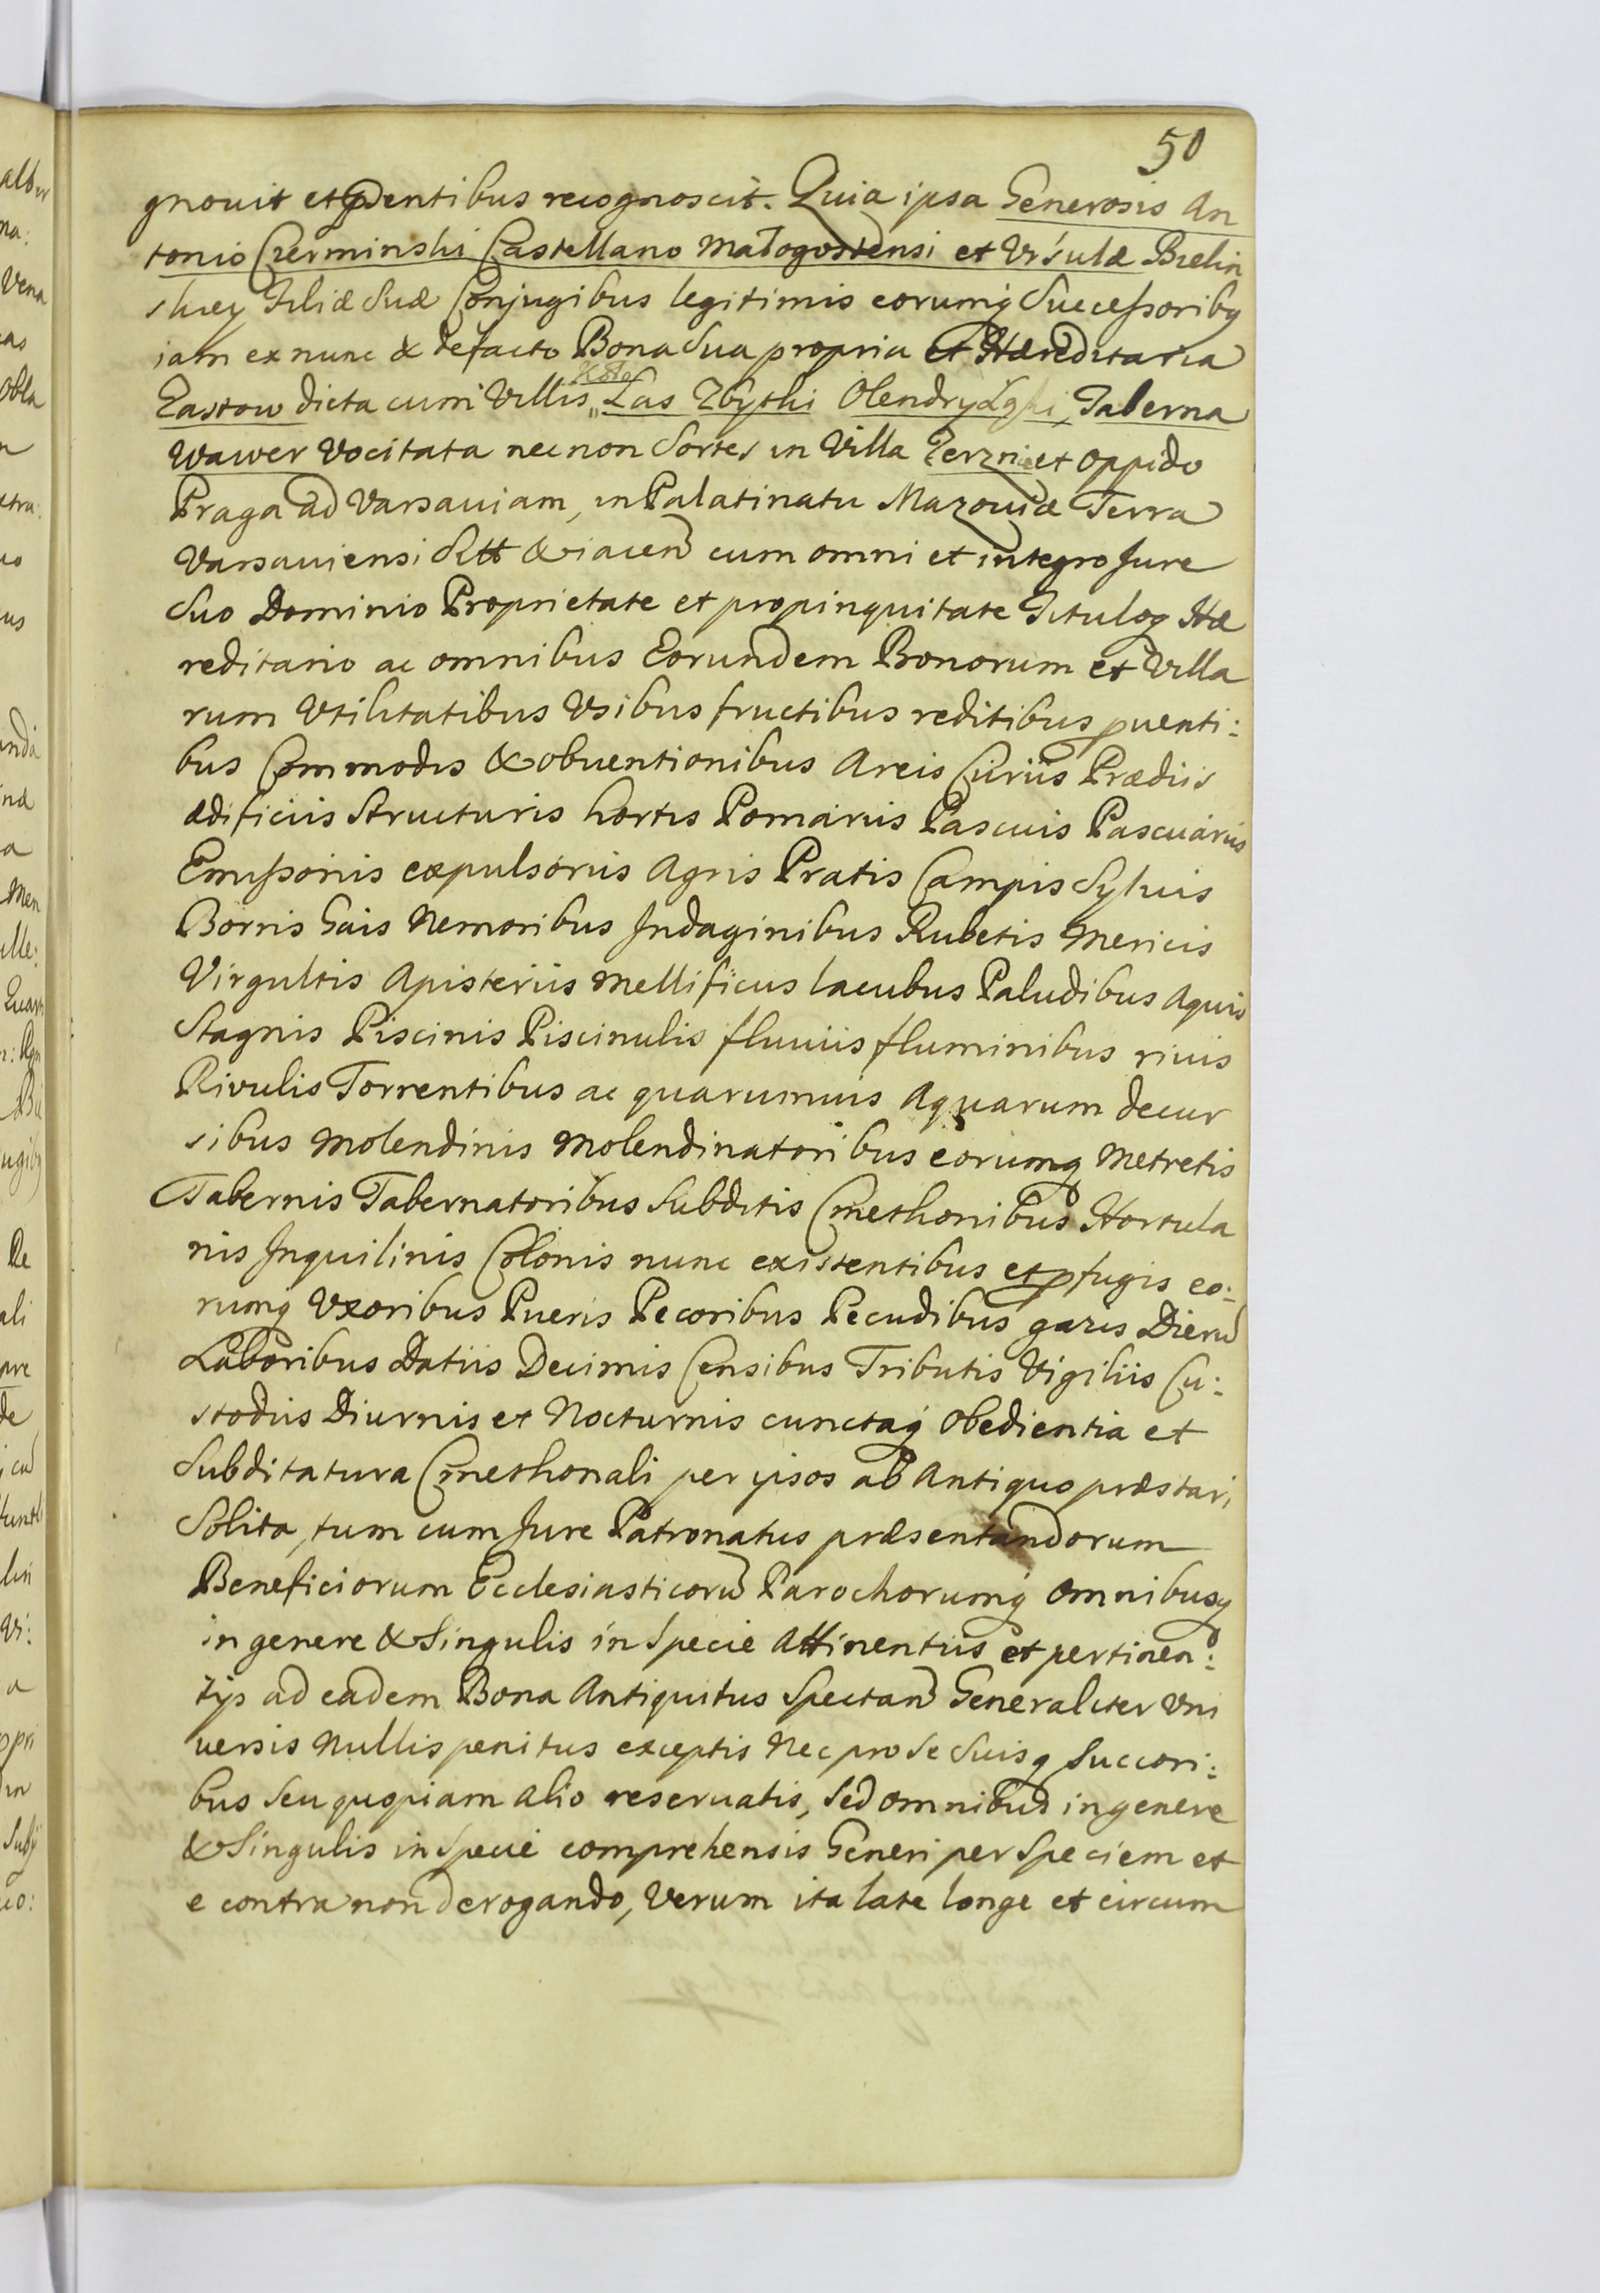 50
gnouit et pdentibus recognoscit. Quia ipsa Generosis An
tonio Czerminski Castellano Małogostensi et Ursulæ Bielin
skiey Filiæ Suæ Conjugibus legitimis eorumq Successoribq
iam ex nunc & defacto Bona Sua propria et Hæreditaria
Zastow dicta cum Villis Las Zbytki Olendry Taberna
Wawer Vocitata nec non Sortes in Villa Zerzni et Oppido
Praga ad Varsauiam, in Palatinatu Mazouiæ Terra
Varsauiensi Sitt & iacen cum omni et integro Jure
Suo Dominio Proprietate et propinquitate Tituloq Hæ
reditario ac omnibus Eorundem Bonorum et Villa
rum Vtilitatibus Vsibus fructibus reditibus puenti:
bus Commodis & obuentionibus Areis Curiis Prædiis
ædificiis Structuris hortis Pomariis Pascuis Pascuariis
Emissoriis expulsoriis Agris Pratis Campis Syluis
Borris Gais Nemoribus Indaginibus Rubetis Mericis
Virgultis Apisteriis Mellificiis lacubus Paludibus Aquis
Stagnis Piscinis Piscinulis fluuiis fluminibus riuis
Rivulis Torrentibus ac quarumuis Aquarum decur
sibus Molendinis Molendinatoribus eorumq Metretis
Tabernis Tabernatoribus Subditis Cmethonibus Hortula
nis Inquilinis Colonis nunc existentibus et pfugis eo:
rumq Vxoribus Pueris Pecoribus Pecudibus gazis Dieru
Laboribus Datiis Decimis Censibus Tributis Vigiliis Cu:
stodiis Diurnis et Nocturnis cunctaq Obedientia et
Subditatura Cmethonali per ipsos ab Antiquo præstari
Solita, tum cum Jure Patronatus præsentandorum
Beneficiorum Ecclesiasticoru Parochorumq Omnibusq
in genere & Singulis in Specie Attinentiis et pertinen:
tijs ad eadem Bona Antiquitus Spectan Generaliter Vni
uersis Nullis penitus exceptis Nec pro se Suisq Succori:
bus Seu quopiam alio reseruatis, Sed Omnibus in genere
& Singulis in Specie comprehensis Generi per Speciem et
e contra non derogando, Verum ita late longe et circum